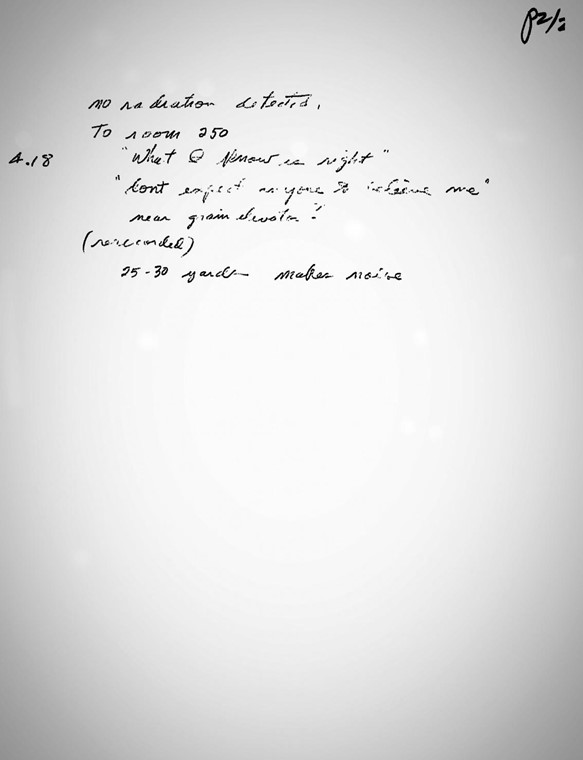 P2/2
no radiation detected.
To room 250
4.18 "What I know is right"
"dont expect anyone to believe me"
near grain elevator!
(rerecorded)
25-30 yards makes noise